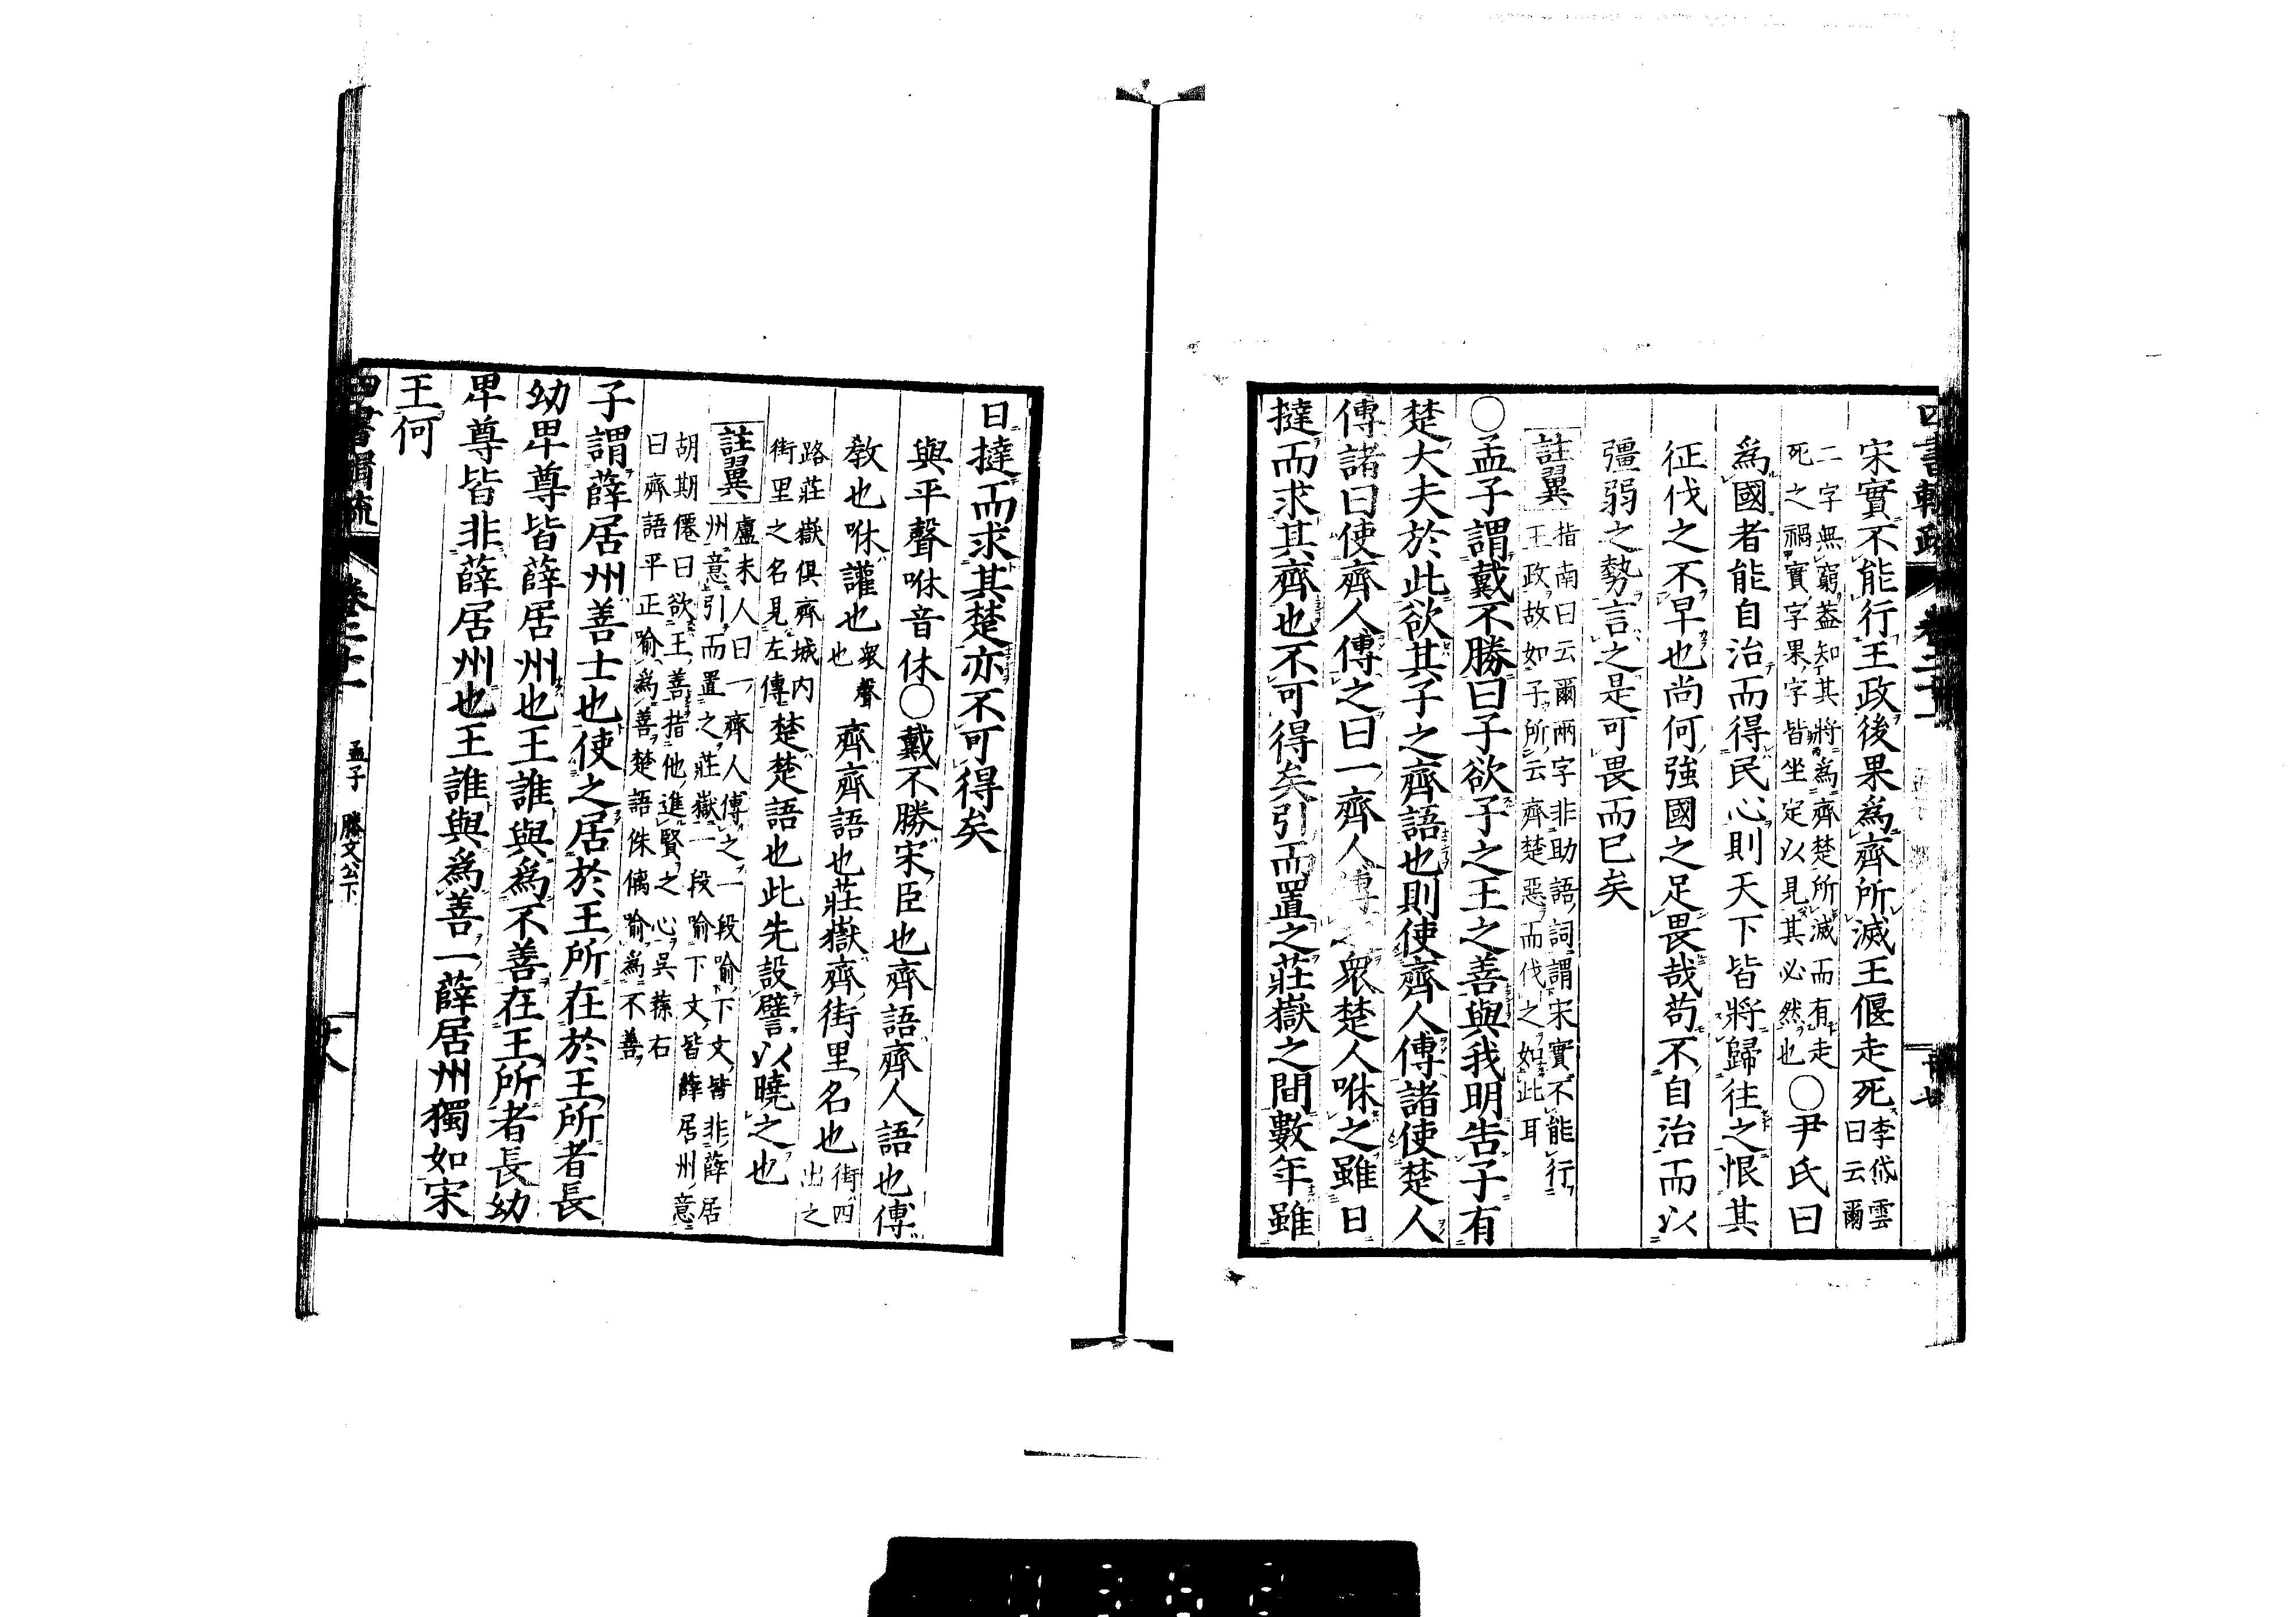 四書輯疏
宋實不能行王政後果爲齊所滅王偃走死李岱雲曰云爾
二字無窮蓋知其將爲齊楚所滅而有走死之禍實字果字皆坐定以見其必然也○尹氏曰
爲國者能自治而得民心則天下皆將歸往之恨其
征伐之不早也尚何強國之足畏哉苟不自治而以
彊弱之勢言之是可畏而已矣
註翼 指南曰云爾兩字非助語詞謂宋實不能行王政故如子所云齊楚惡而伐之如此耳
○孟子謂戴不勝曰子欲子之王之善與我明告子有
楚大夫於此欲其子之齊語也則使齊人傅諸使楚人
傅諸曰使齊人傅之曰一齊人衆楚人咻之雖日
撻而求其齊也不可得矣引而置之莊嶽之間數年雖
日撻而求其楚亦不可得矣
與平聲咻音休○戴不勝宋臣也齊語齊人語也傅
教也咻讙也衆聲也齊齊語也莊嶽齊街里名也街四出之
路莊嶽俱齊城内街里之名見左傳楚楚語也此先設譬以曉之也
註翼 盧未人曰一齊人傅之一段喻下文皆非薛居州意引而置之莊嶽一段喻下文皆薛居州意
胡期僊曰欲王善指他進賢之心吳蓀右曰齊語平正喻爲善楚語侏𠌯喻爲不善
子謂薛居州善士也使之居於王所在於王所者長
幼卑尊皆薛居州也王誰與爲不善在王所者長幼
卑尊皆非薛居州也王誰與爲善一薛居州獨如宋
王何
四書輯疏
孟子 滕文公下